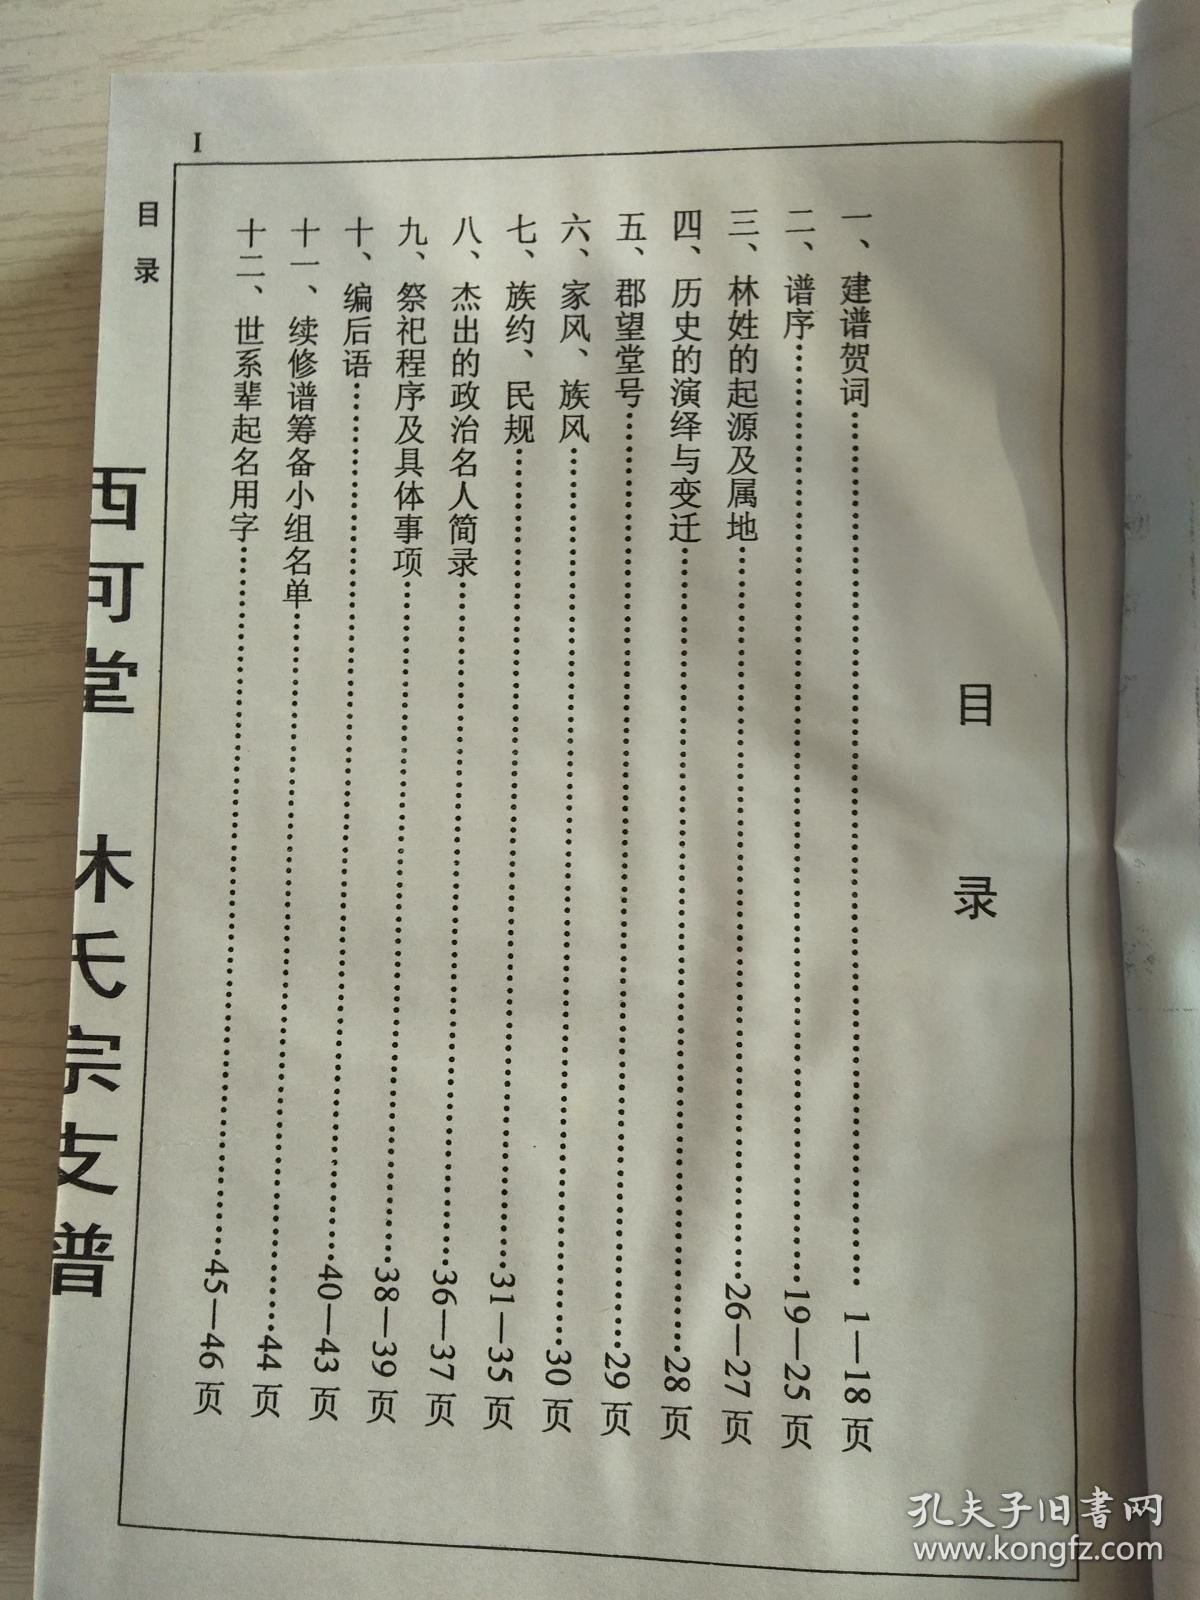 目录
一、建谱贺词……………………1—18页
二、谱序……………………19—25页
三、林姓的起源及属地……………………26—27页
四、历史的演绎与变迁……………………28页
五、郡望堂号……………………29页
六、家风、族风……………………30页
七、族约、民规……………………31—35页
八、杰出的政治名人简录……………………36—37页
九、祭祀程序及具体事项……………………38—39页
十、编后语……………………40—43页
十一、续修谱筹备小组名单……………………44页
十二、世系辈起名用字……………………45—46页
I
目录
西河堂 林氏宗支谱
孔夫子旧书网
www.kongfz.com